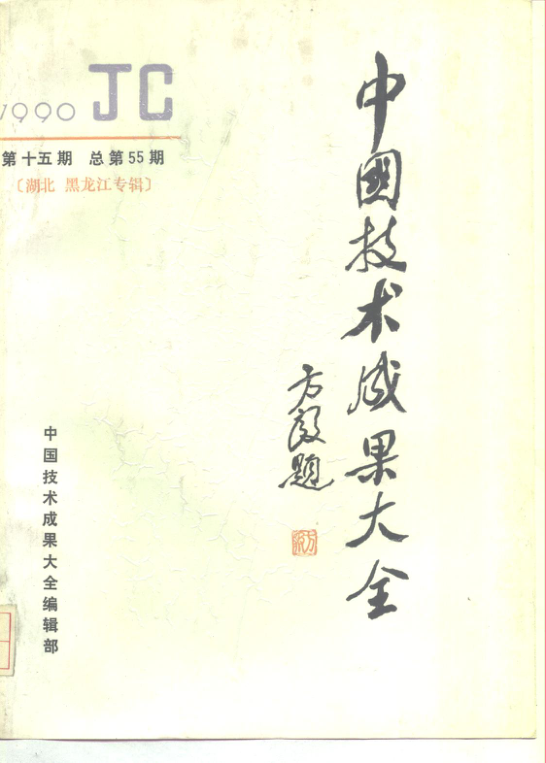 1990 JC
第十五期 总第55期
〔湖北 黑龙江专辑〕
中國技术成果大全
方毅题
中国技术成果大全编辑部